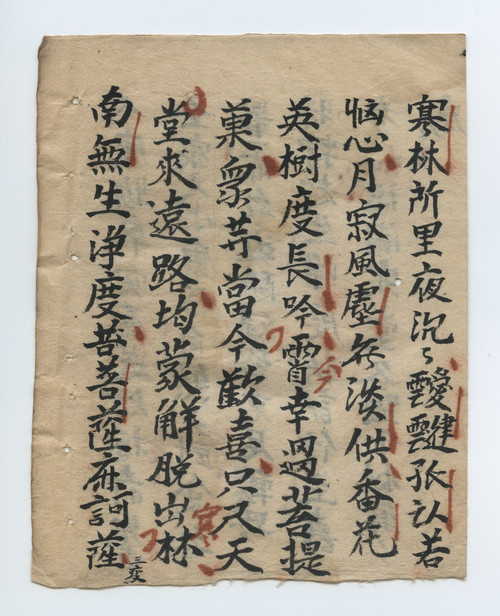 寒林所里夜沉〻靉靆孤认若
恼心月寂風淡供香花
英樹度長吟霄今幸過菩提
菓衆䒭當今歡喜只又天
堂來遠路均蒙解脱出寒林
南無生淨度菩菩薩麻訶薩三变